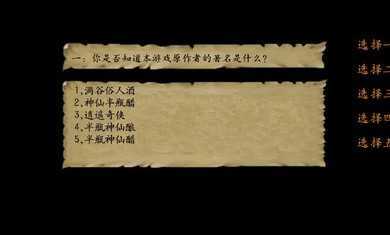 一：你是否知道本游戏原作者的著名是什么？
1,涡谷俗人酒
2,神仙半瓶醋
3,逍遥奇侠
4,半瓶神仙酿
5,半瓶神仙醋
选择一
选择二
选择三
选择四
选择五